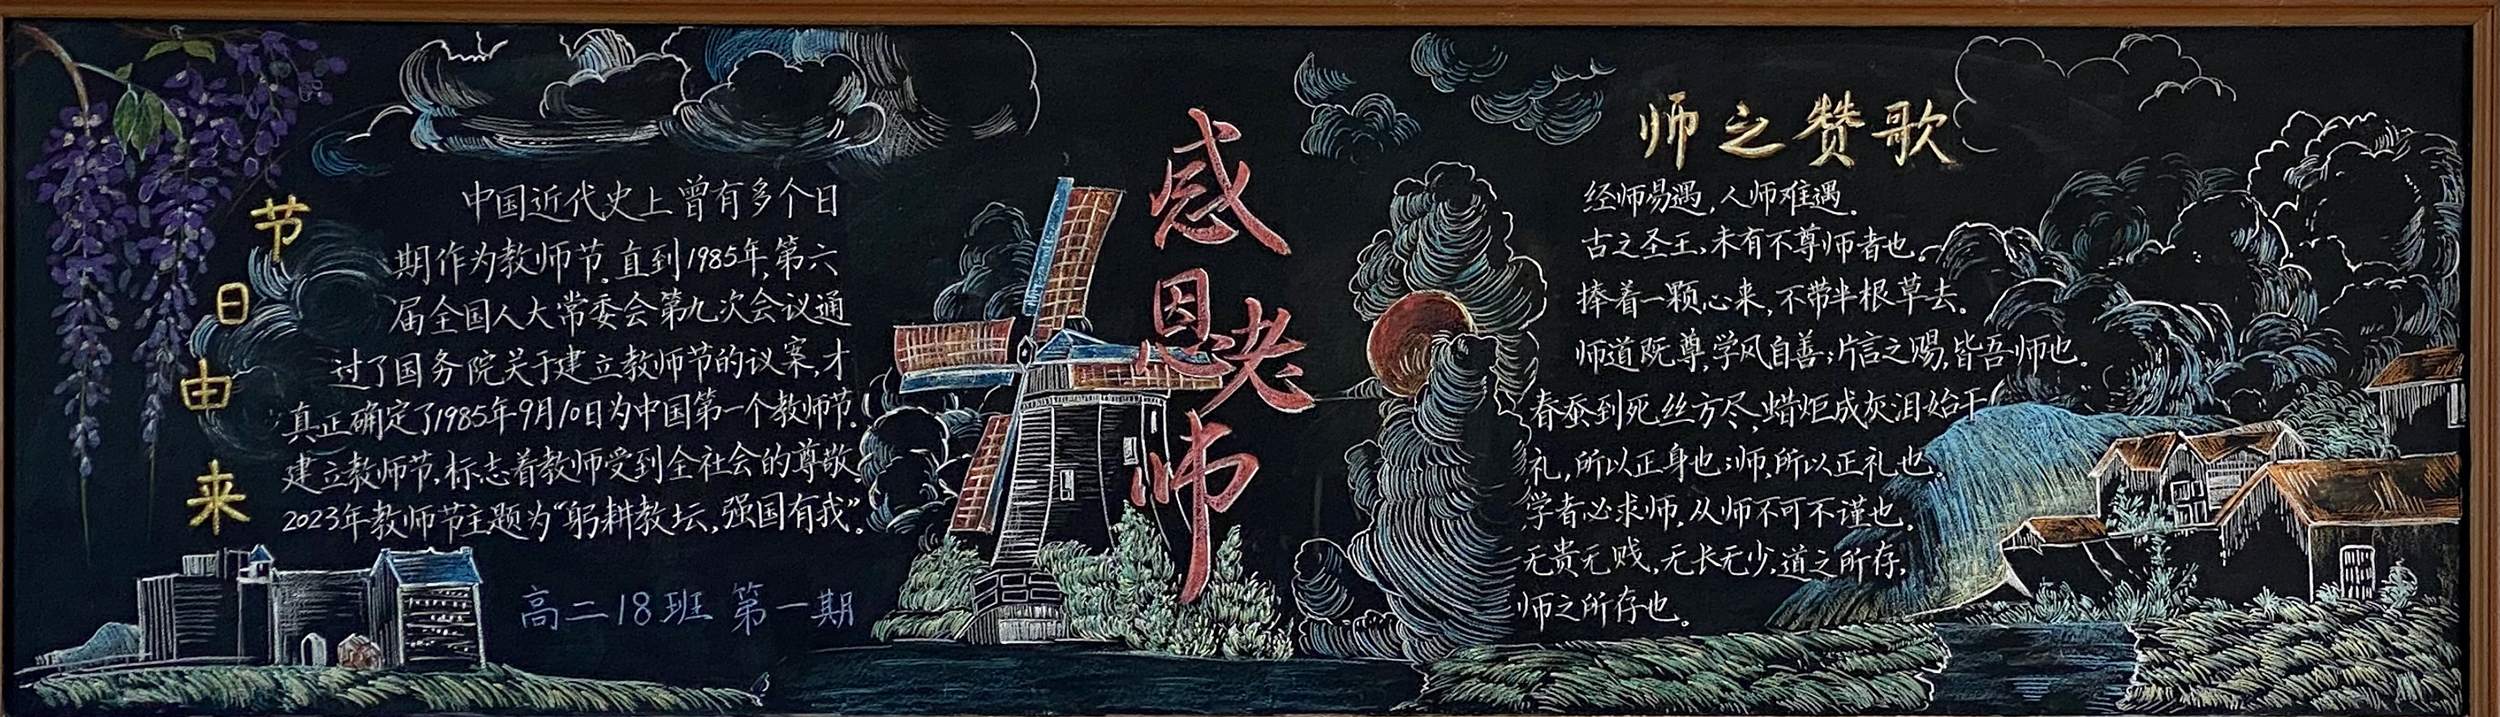 节日由来
中国近代史上曾有多个日
期作为教师节。直到1985年,第六
届全国人大常委会第九次会议通
过了国务院关于建立教师节的议案,才
真正确定了1985年9月10日为中国第一个教师节。
建立教师节,标志着教师受到全社会的尊敬。
2023年教师节主题为“躬耕教坛,强国有我”。
高二18班 第一期
感恩老师
师之赞歌
经师易遇,人师难遇。
古之圣王,未有不尊师者也。
捧着一颗心来,不带半根草去。
师道既尊,学风自善;片言之赐,皆吾师也。
春蚕到死丝方尽,蜡炬成灰泪始干
礼,所以正身也;师,所以正礼也。
学者必求师,从师不可不谨也。
无贵无贱,无长无少,道之所存,
师之所存也。